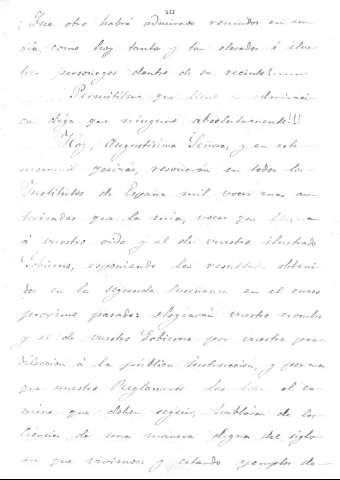 ¡Que otro habrá admirado reunidos en un
dia como hoy tanta y tan elevados é ilus
tres personages dentro de su recinto!
Permitidme que lleno de admiracion
os diga que ninguno absolutamente!!!
Hoy, Augustisima Señora, y en este
momento quizás, resonarán en todos los
Institutos de España mil voces mas au
torizadas que la mia, voces que
á vuestro oido y al de vuestro ilustrado
Gobierno, esponiendo los resultados obteni
dos en la segunda Enseñanza en el curso
proximo pasado: elogiarán vuestro nombre
y el de vuestro Gobierno por vuestra pre
dileccion á la pública instruccion, y por
que nuestro Reglamento les el ca
mino que deben seguir, hablarán de las
Ciencias de una manera digna del siglo
en que vivimos y citando ejemplos de